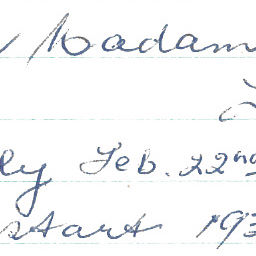 Madam
ly Feb. 22nd
start 193